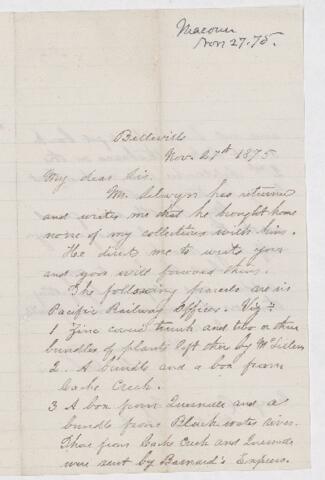 Macoun
Nov 27. 75.
Belleville
Nov. 27th 1875
My dear Sir.
Mr. Selwyn has returned
and writes me that he brought home
none of my collections with him.
He directs me to write you
and you will forward them.
The following parcels are in
Pacific Railway Offices. Viz:
1 Zinc cover trunk and two or three
bundles of plants left there by Mr
2. A bundle and a box from
Cache Creek.
3 A box from Quesnelle and a
bundle from Blackwater river.
Those from Cache Creek and Quesnelle
were sent by Barnard's Express.